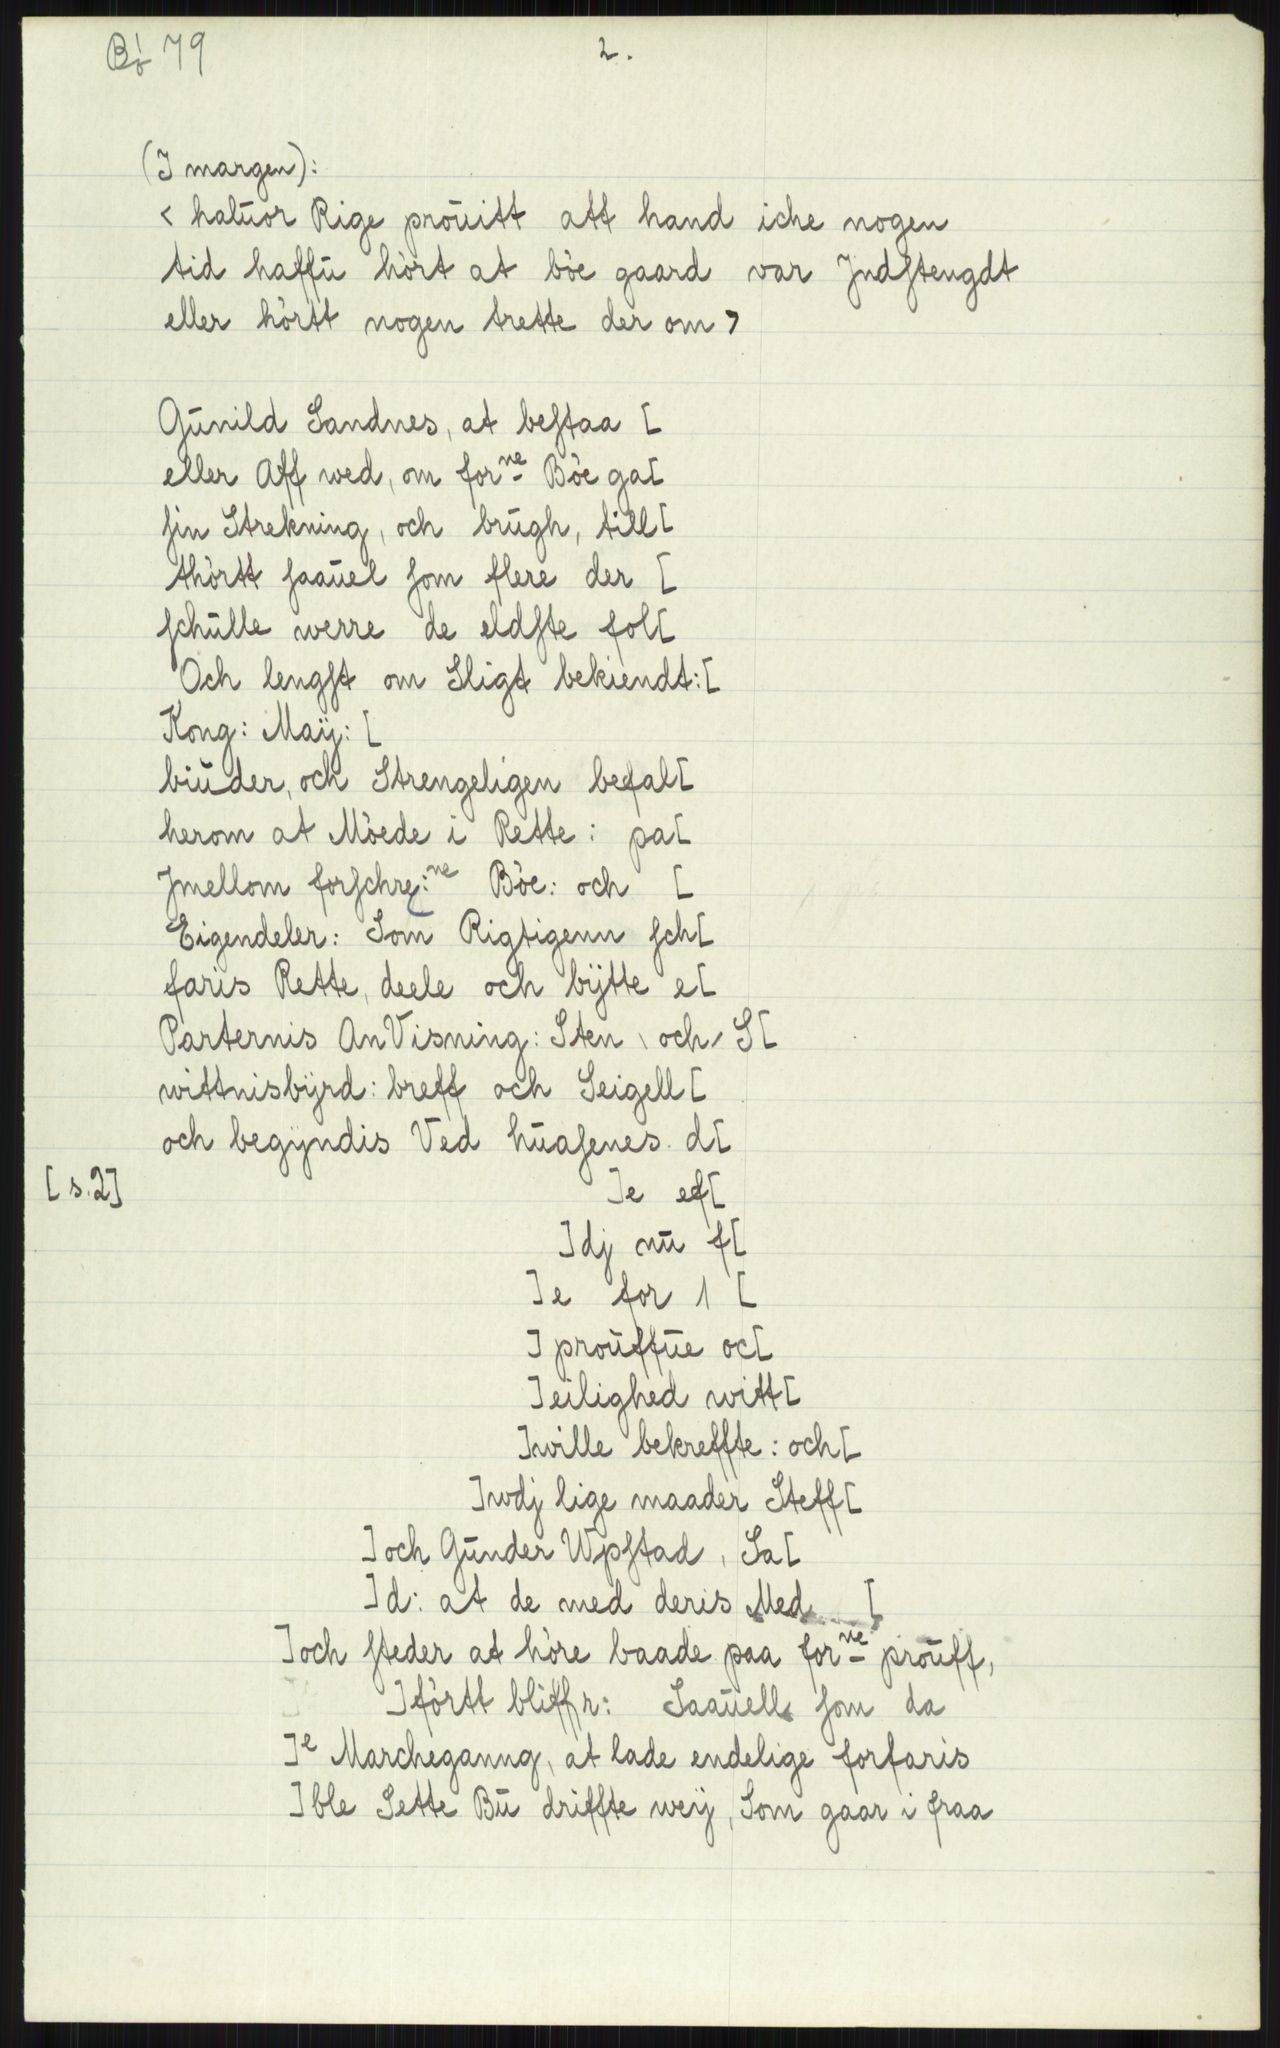 Bø 79
2.
(I margen):
< haluor Rige prouitt att hand iche nogen
tid haffu hørt at bøe gaard var Jndstengdt
eller hørtt nogen trette der om >
Gunild Sandnes, at bestaa [
eller Aff wed, om forne Bøe ga[
sin Strekning, och brugh, till[
thørtt saauel som flere der [
schulle werre de eldste fol[
Och lengst om Sligt bekiendt:[
Kong: Maÿ: [
biuder, och Strengeligen befal[
herom at Møede i Rette: pa[
Jmellom forschre:ne Bøe: och [
Eigendeler: Som Rigtigenn sch[
faris Rette, deele och bÿtte e[
Parternis AnVisning: Sten, och, S[
wittnisbÿrd: breff och Seigell[
och begÿndis Ved huasenes d[
[s.2]
]e ef[
]dj nu f[
]e for 1 [
] prouffue oc[
]eilighed witt[
]wille bekreffte: och[
]wdj lige maader Steff[
]och Gunder Wpstad, Sa[
]d: at de med deris Med [
]och steder at høre baade paa forne prouff,
]førtt bliffr: Saauell som da
]e Marcheganng, at lade endelige forfaris
]ble Sette Bu driffte weÿ, Som gaar i fraa